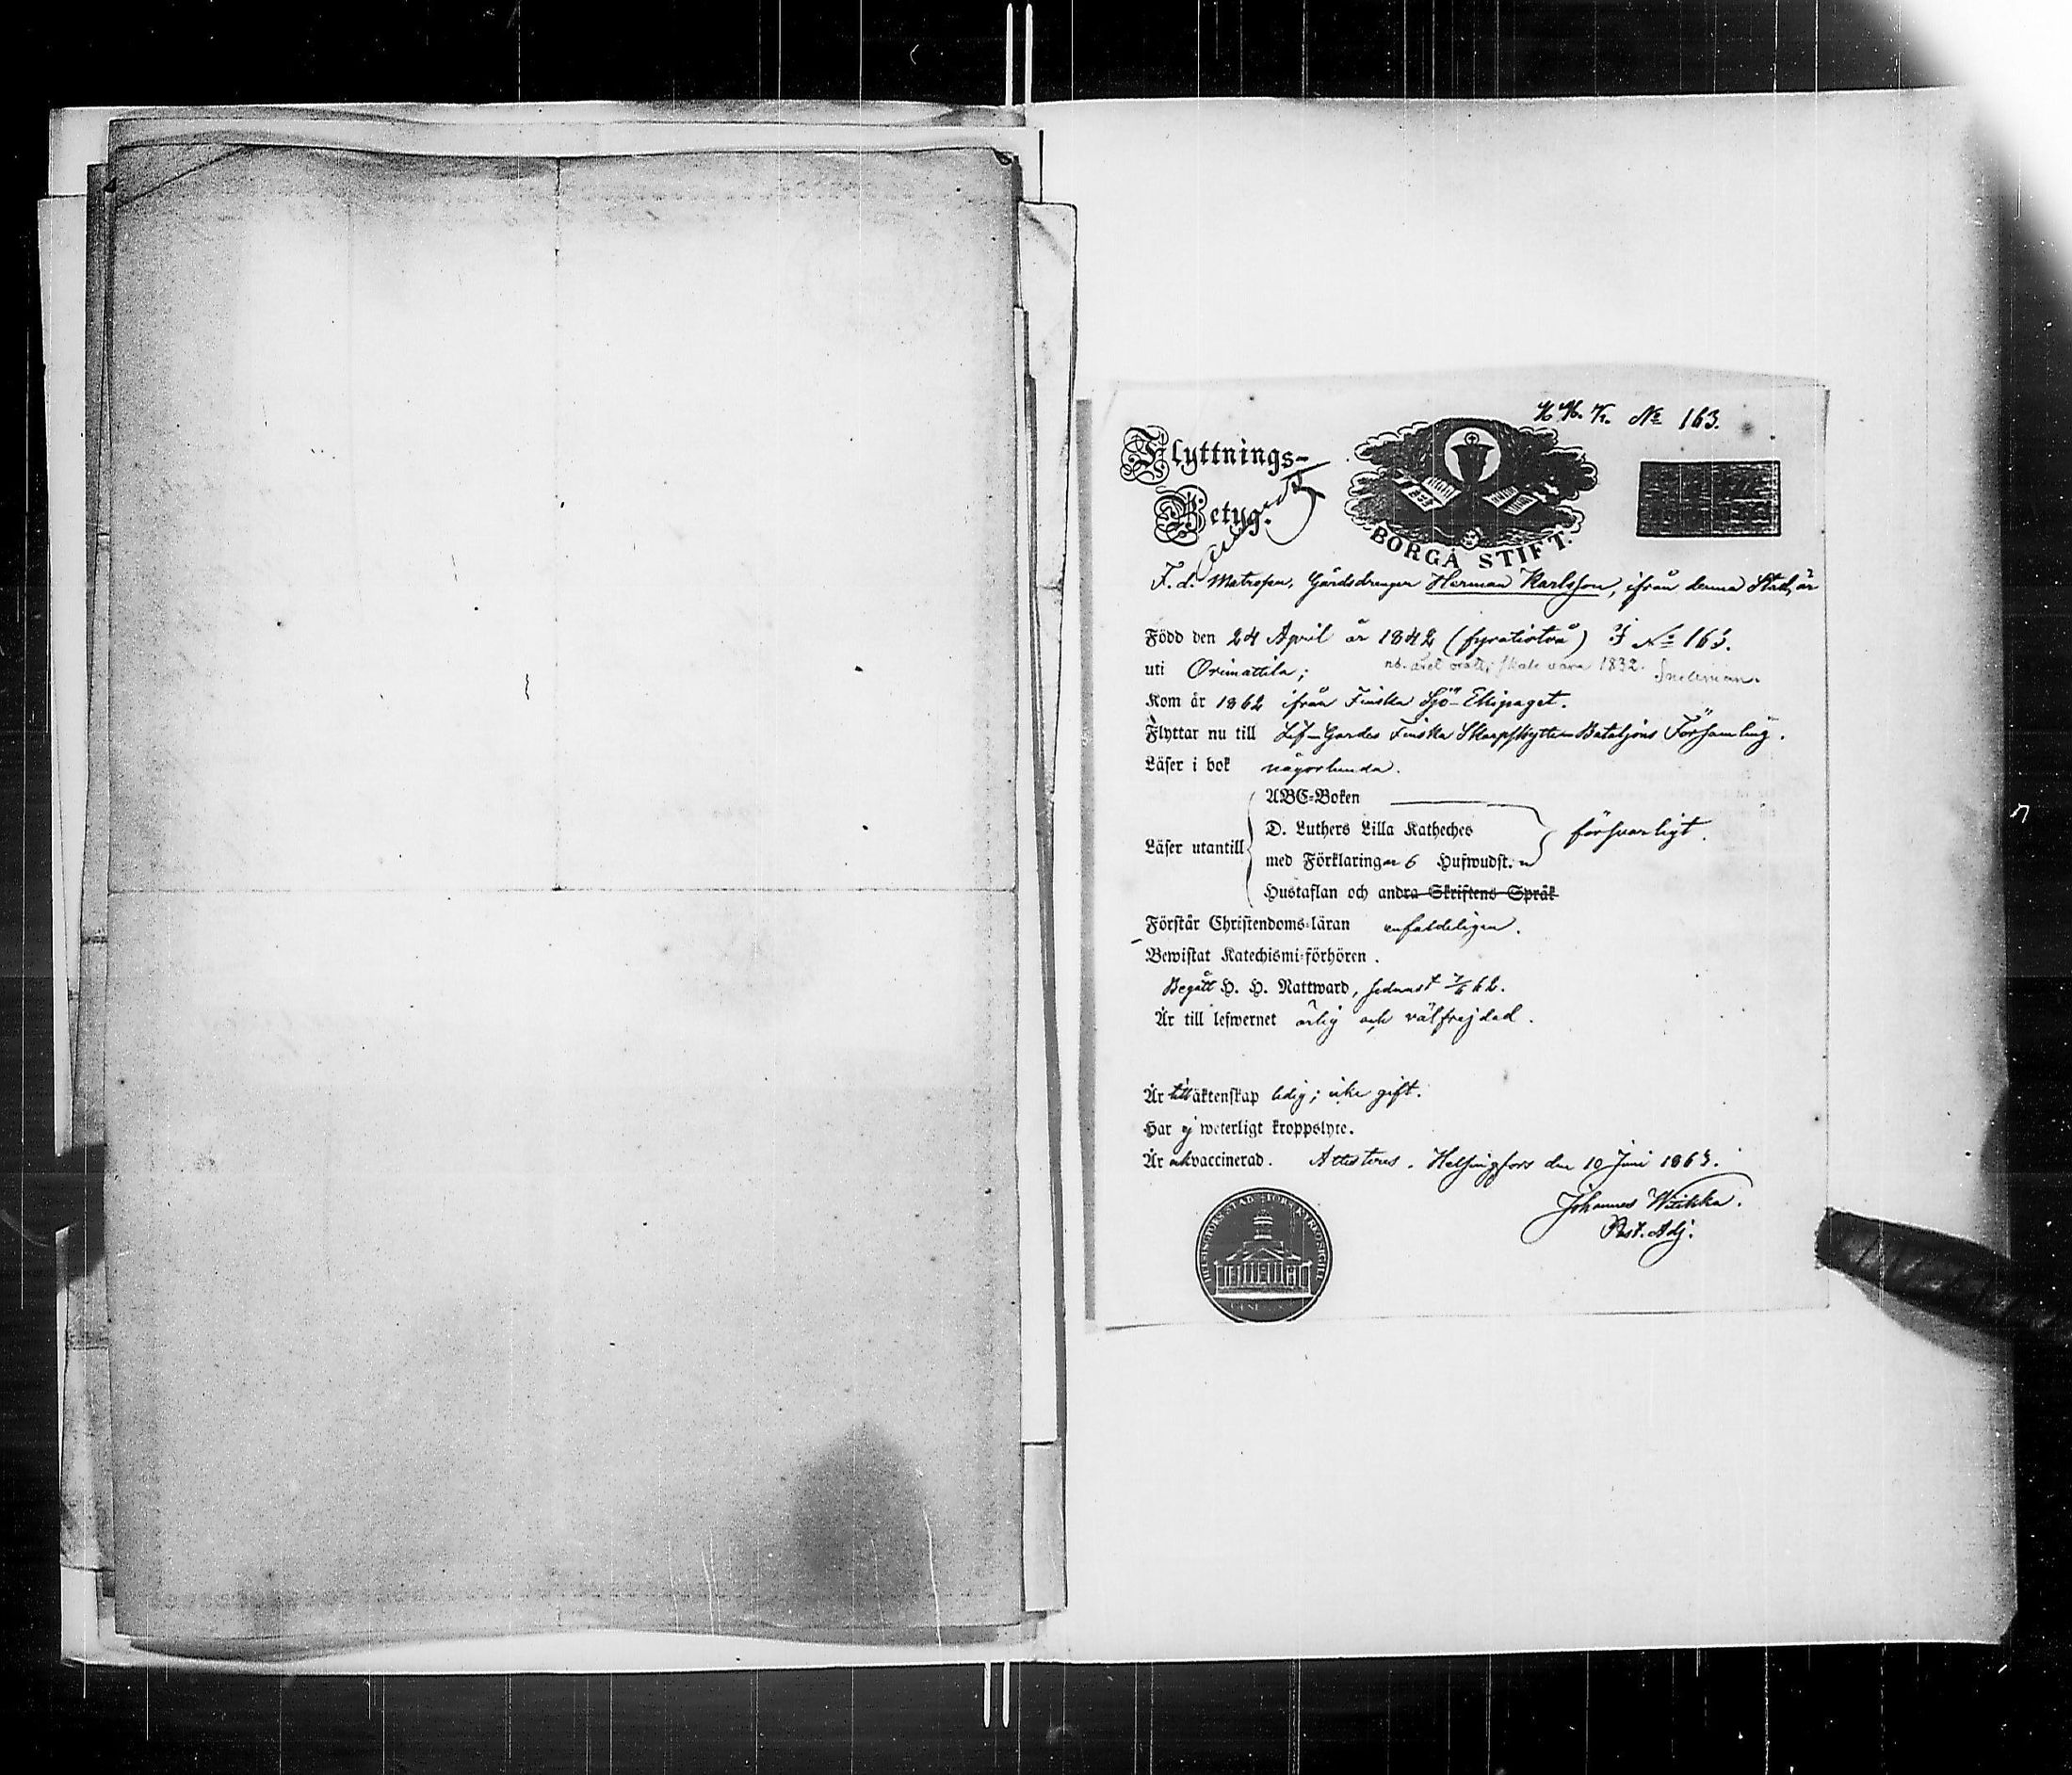 № 163.
Flyttnings-
Betyg.
BORGÅ STIFT.
F. d. Matrosen, Gårdsdrengen Herman Karlsson, ifrån denna Stad, är
Född den 24 April år 1842 (fyratiotvå) № 163.
uti Orimattila; nb. året orätt; skall vara 1832. Snellman.
Kom år 1862 ifrån Finska Sjö-Ekipaget.
Flyttar nu till Lif-Gardes Finska Skarpskytte-Bataljons Församling.
Läser i bok någorlunda.
ABC-Boken
D. Luthers Lilla Katheches
Läser utantill försvarligt.
med Förklaringar 6 Hufwudst.
Hustaflan och andra Skriftens Språk
Förstår Christendoms-läran enfaldeligen.
Bewistat Katechismi-förhören.
Begått H. H. Nattward, sednast 7/6 62.
Är till lefwernet ärlig och välfrejdad.
Är till äktenskap ledig; icke gift.
Har ej weterligt kroppslyte.
Är vaccinerad. Attesteras. Helsingfors den 10 Juni 1863.
Johannes Witikka.
Past. Adj.
HELSINGFORS STAD STORKYRKO SIGILL